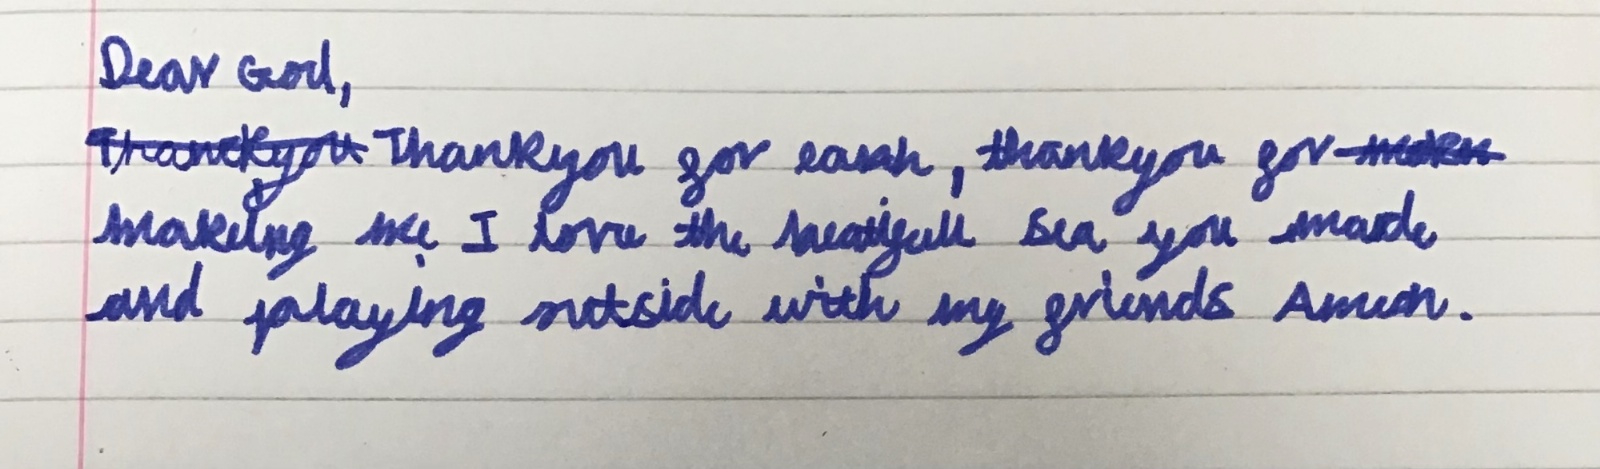 Dear God,
Thankyou Thankyou for earth, thankyou for
making me I love the beatifull sea you made
and playing outside with my friends Amen.